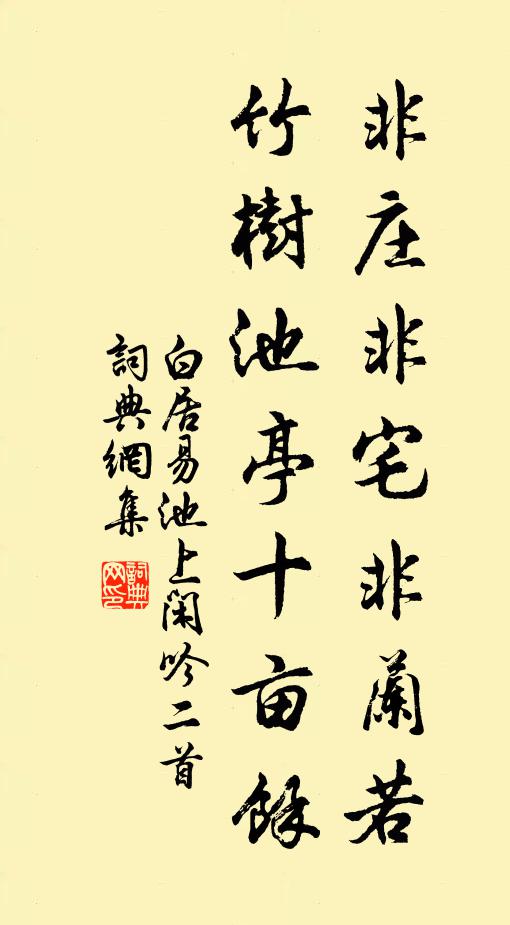 非庄非宅非蘭若
竹樹池亭十亩餘
白居易池上闲吟二首
詞典網集
詞典网印